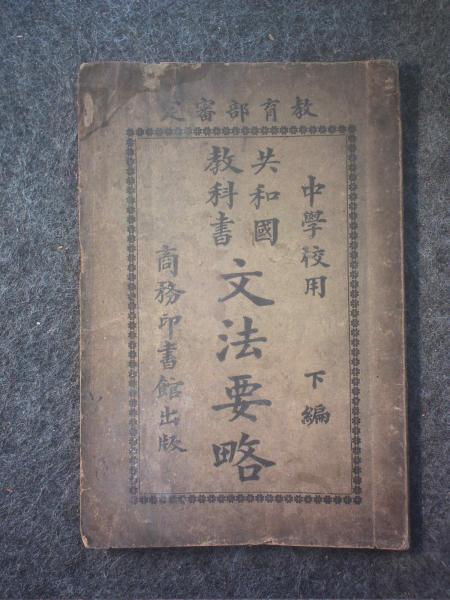 教育部審定
中學校用 下編
共和國
教科書
文法要略
商務印書館出版